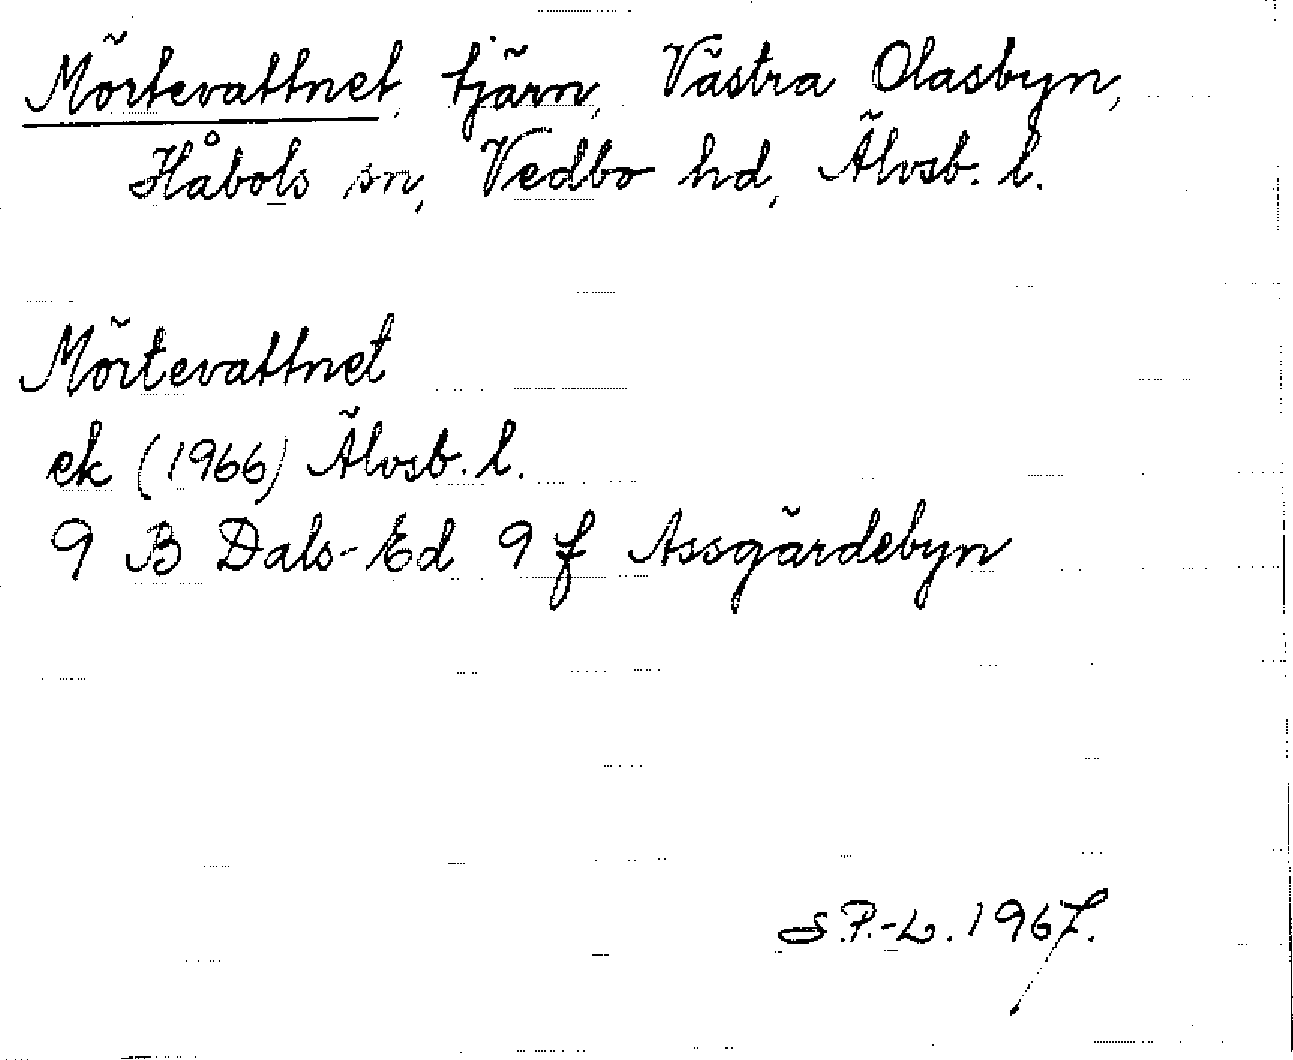 Mörtevattnet, tjärn, Västra Olasbyn,
Håbols sn, Vedbo hd, Älvsb. l.
Mörtevattnet
ek (1966) Älvsb. l.
9 B Dals-Ed 9 f Assgärdebyn
S.P.-L. 1967.